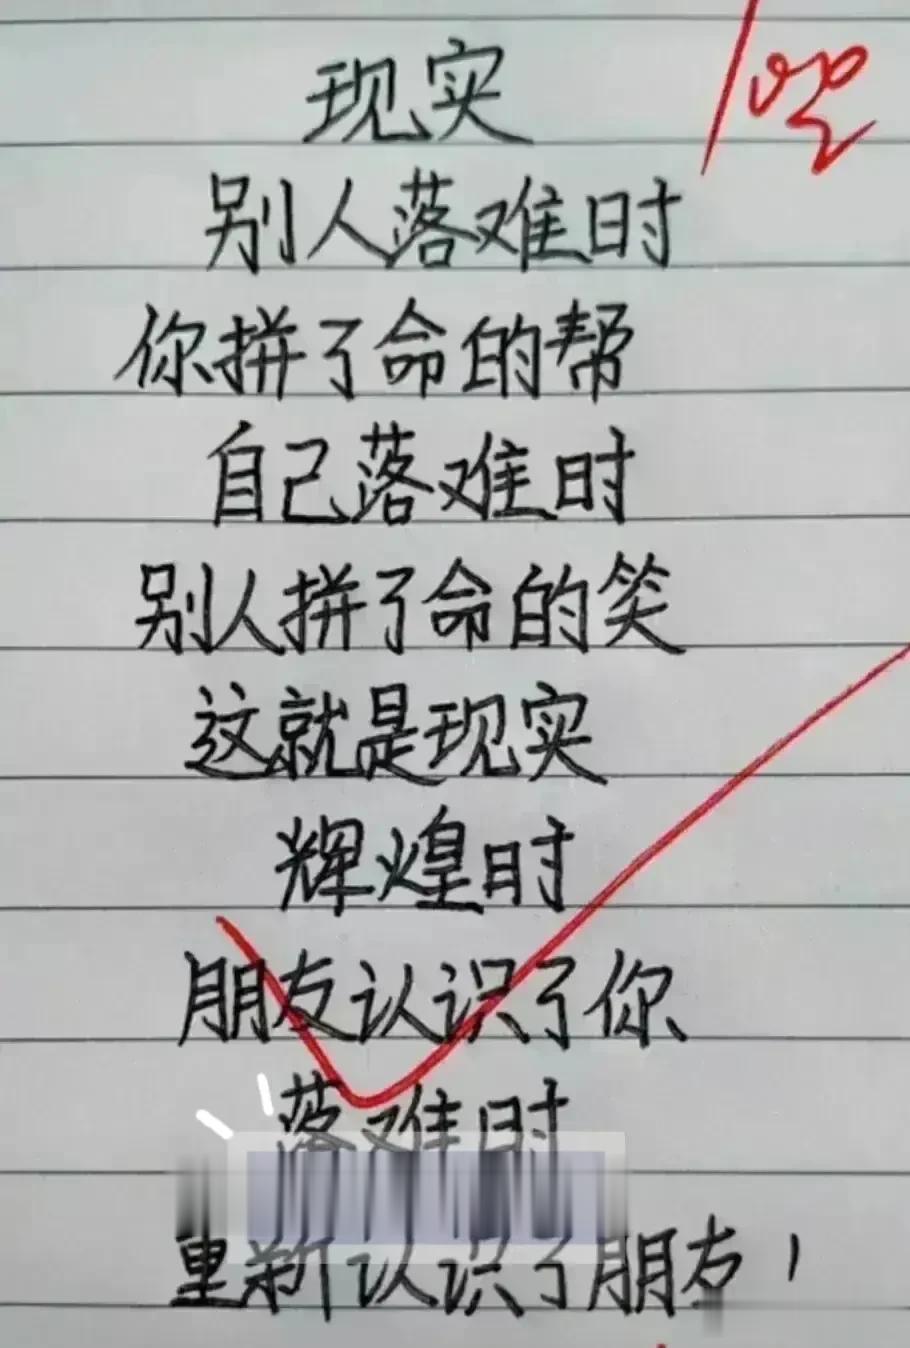 现实
别人落难时
你拼了命的帮
自己落难时
别人拼了命的笑
这就是现实
辉煌时
朋友认识了你
落难时
重新认识了朋友！